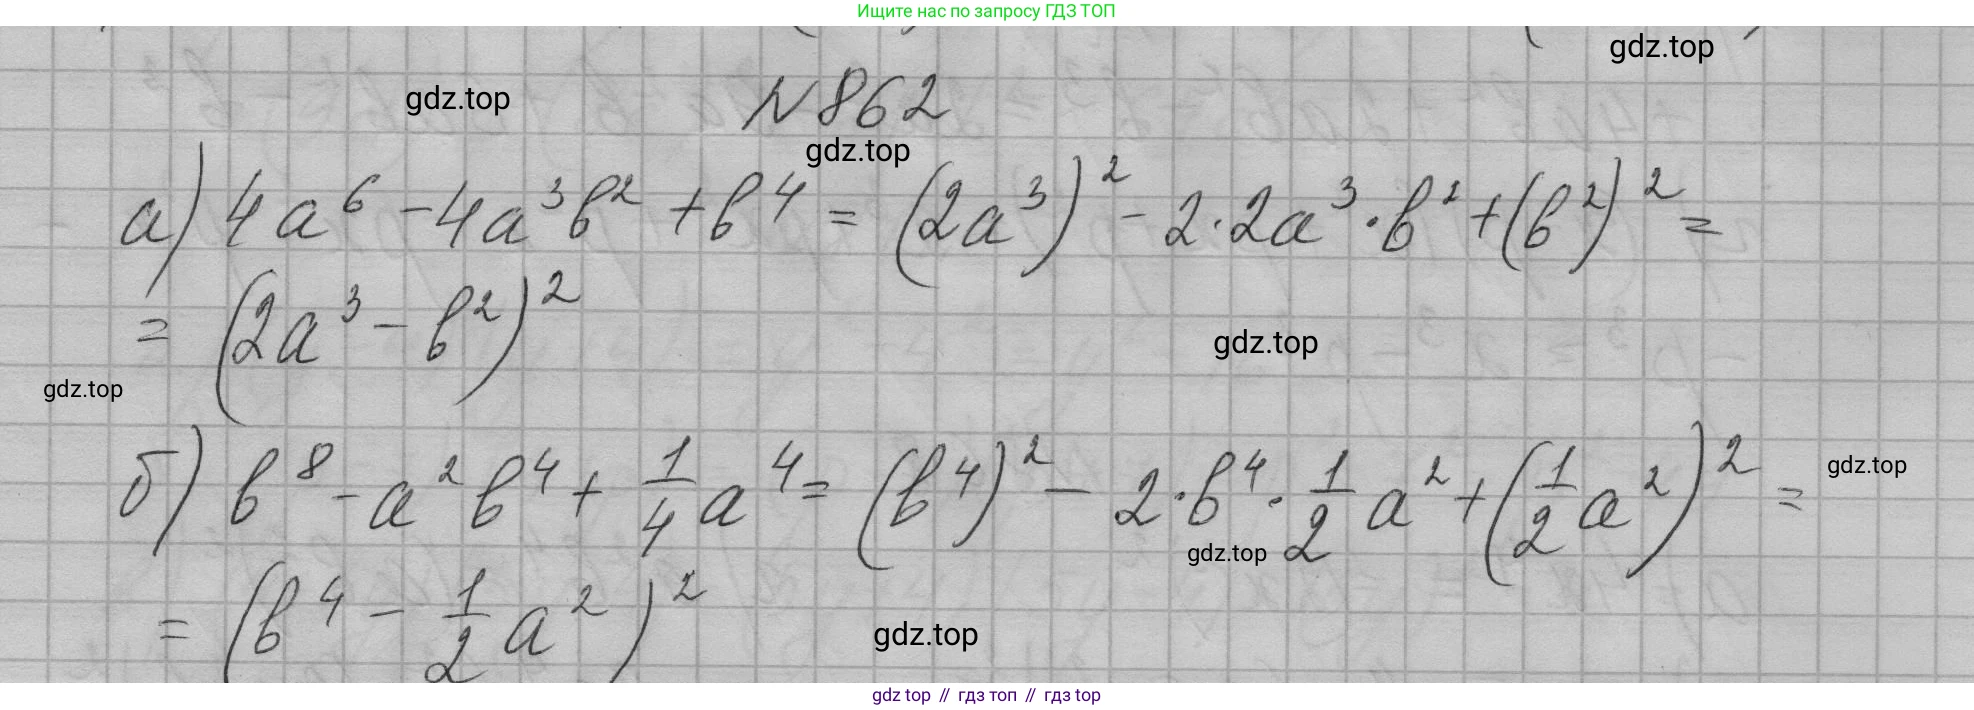 Ищите нас по запросу ГДЗ ТОП
gdz.top
gdz.top
N 862
gdz.top
а) 4a⁶ - 4a³b² + b⁴ = (2a³)² - 2·2a³·b² + (b²)² =
= (2a³ - b²)²
gdz.top
gdz.top
б) b⁸ - a²b⁴ + 1/4 a⁴ = (b⁴)² - 2·b⁴·1/2 a² + (1/2 a²)² =
gdz.top
gdz.top
= (b⁴ - 1/2 a²)²
gdz.top
gdz top // гдз топ // гдз top